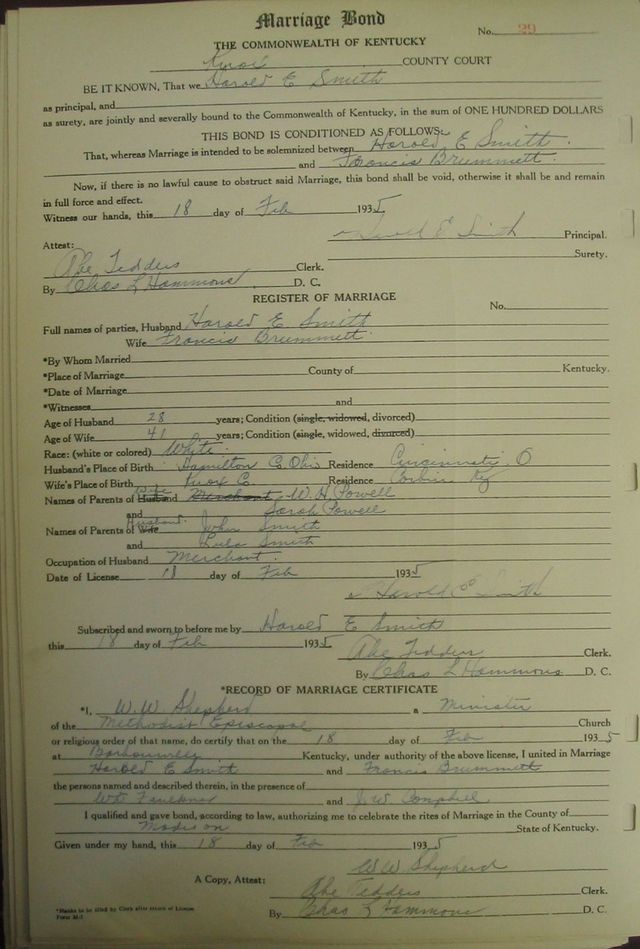 Marriage Bond
No. 29
THE COMMONWEALTH OF KENTUCKY
Knox COUNTY COURT
BE IT KNOWN, That we Harold E Smith
as principal, and
as surety, are jointly and severally bound to the Commonwealth of Kentucky, in the sum of ONE HUNDRED DOLLARS
THIS BOND IS CONDITIONED AS FOLLOWS:
That, whereas Marriage is intended to be solemnized between Harold E Smith.
and Francis Brummett.
Now, if there is no lawful cause to obstruct said Marriage, this bond shall be void, otherwise it shall be and remain
in full force and effect.
Witness our hands, this 18 day of Feb 1935
Harold E Smith Principal.
Attest: Surety.
Abe Tedders Clerk.
By Chas L Hammons D. C.
REGISTER OF MARRIAGE
No.
Full names of parties, Husband Harold E Smith
Wife Francis Brummett.
*By Whom Married
*Place of Marriage County of Kentucky.
*Date of Marriage
*Witnesses and
Age of Husband 28 years; Condition (single, widowed, divorced)
Age of Wife 41 years; Condition (single, widowed, divorced)
Race: (white or colored) White
Husband's Place of Birth Hamilton Co. Ohio Residence Cincinnati, O
Wife's Place of Birth Knox Co. Residence Corbin Ky
Names of Parents of Husband Wife Merchant W. H. Powell
and Sarah Powell
Names of Parents of Wife Husband John Smith
and Lula Smith
Occupation of Husband Merchant.
Date of License 18 day of Feb 1935
Harold E Smith
Subscribed and sworn to before me by Harold E Smith
this 18 day of Feb 1935
Abe Tedders Clerk.
By Chas L Hammons D. C.
*RECORD OF MARRIAGE CERTIFICATE
*I, W. W. Shepherd a Minister
of the Methodist Episcopal Church
or religious order of that name, do certify that on the 18 day of Feb 1935
at Barbourville Kentucky, under authority of the above license, I united in Marriage
Harold E Smith and Francis Brummett
the persons named and described therein, in the presence of
Faulkner and J. W. Campbell
I qualified and gave bond, according to law, authorizing me to celebrate the rites of Marriage in the County of
Madison State of Kentucky.
Given under my hand, this 18 day of Feb 1935
W W Shepherd
A Copy, Attest:
Abe Tedders Clerk.
By Chas L Hammons D. C.
*Blanks to be filled by Clerk after return of License
Form M-1